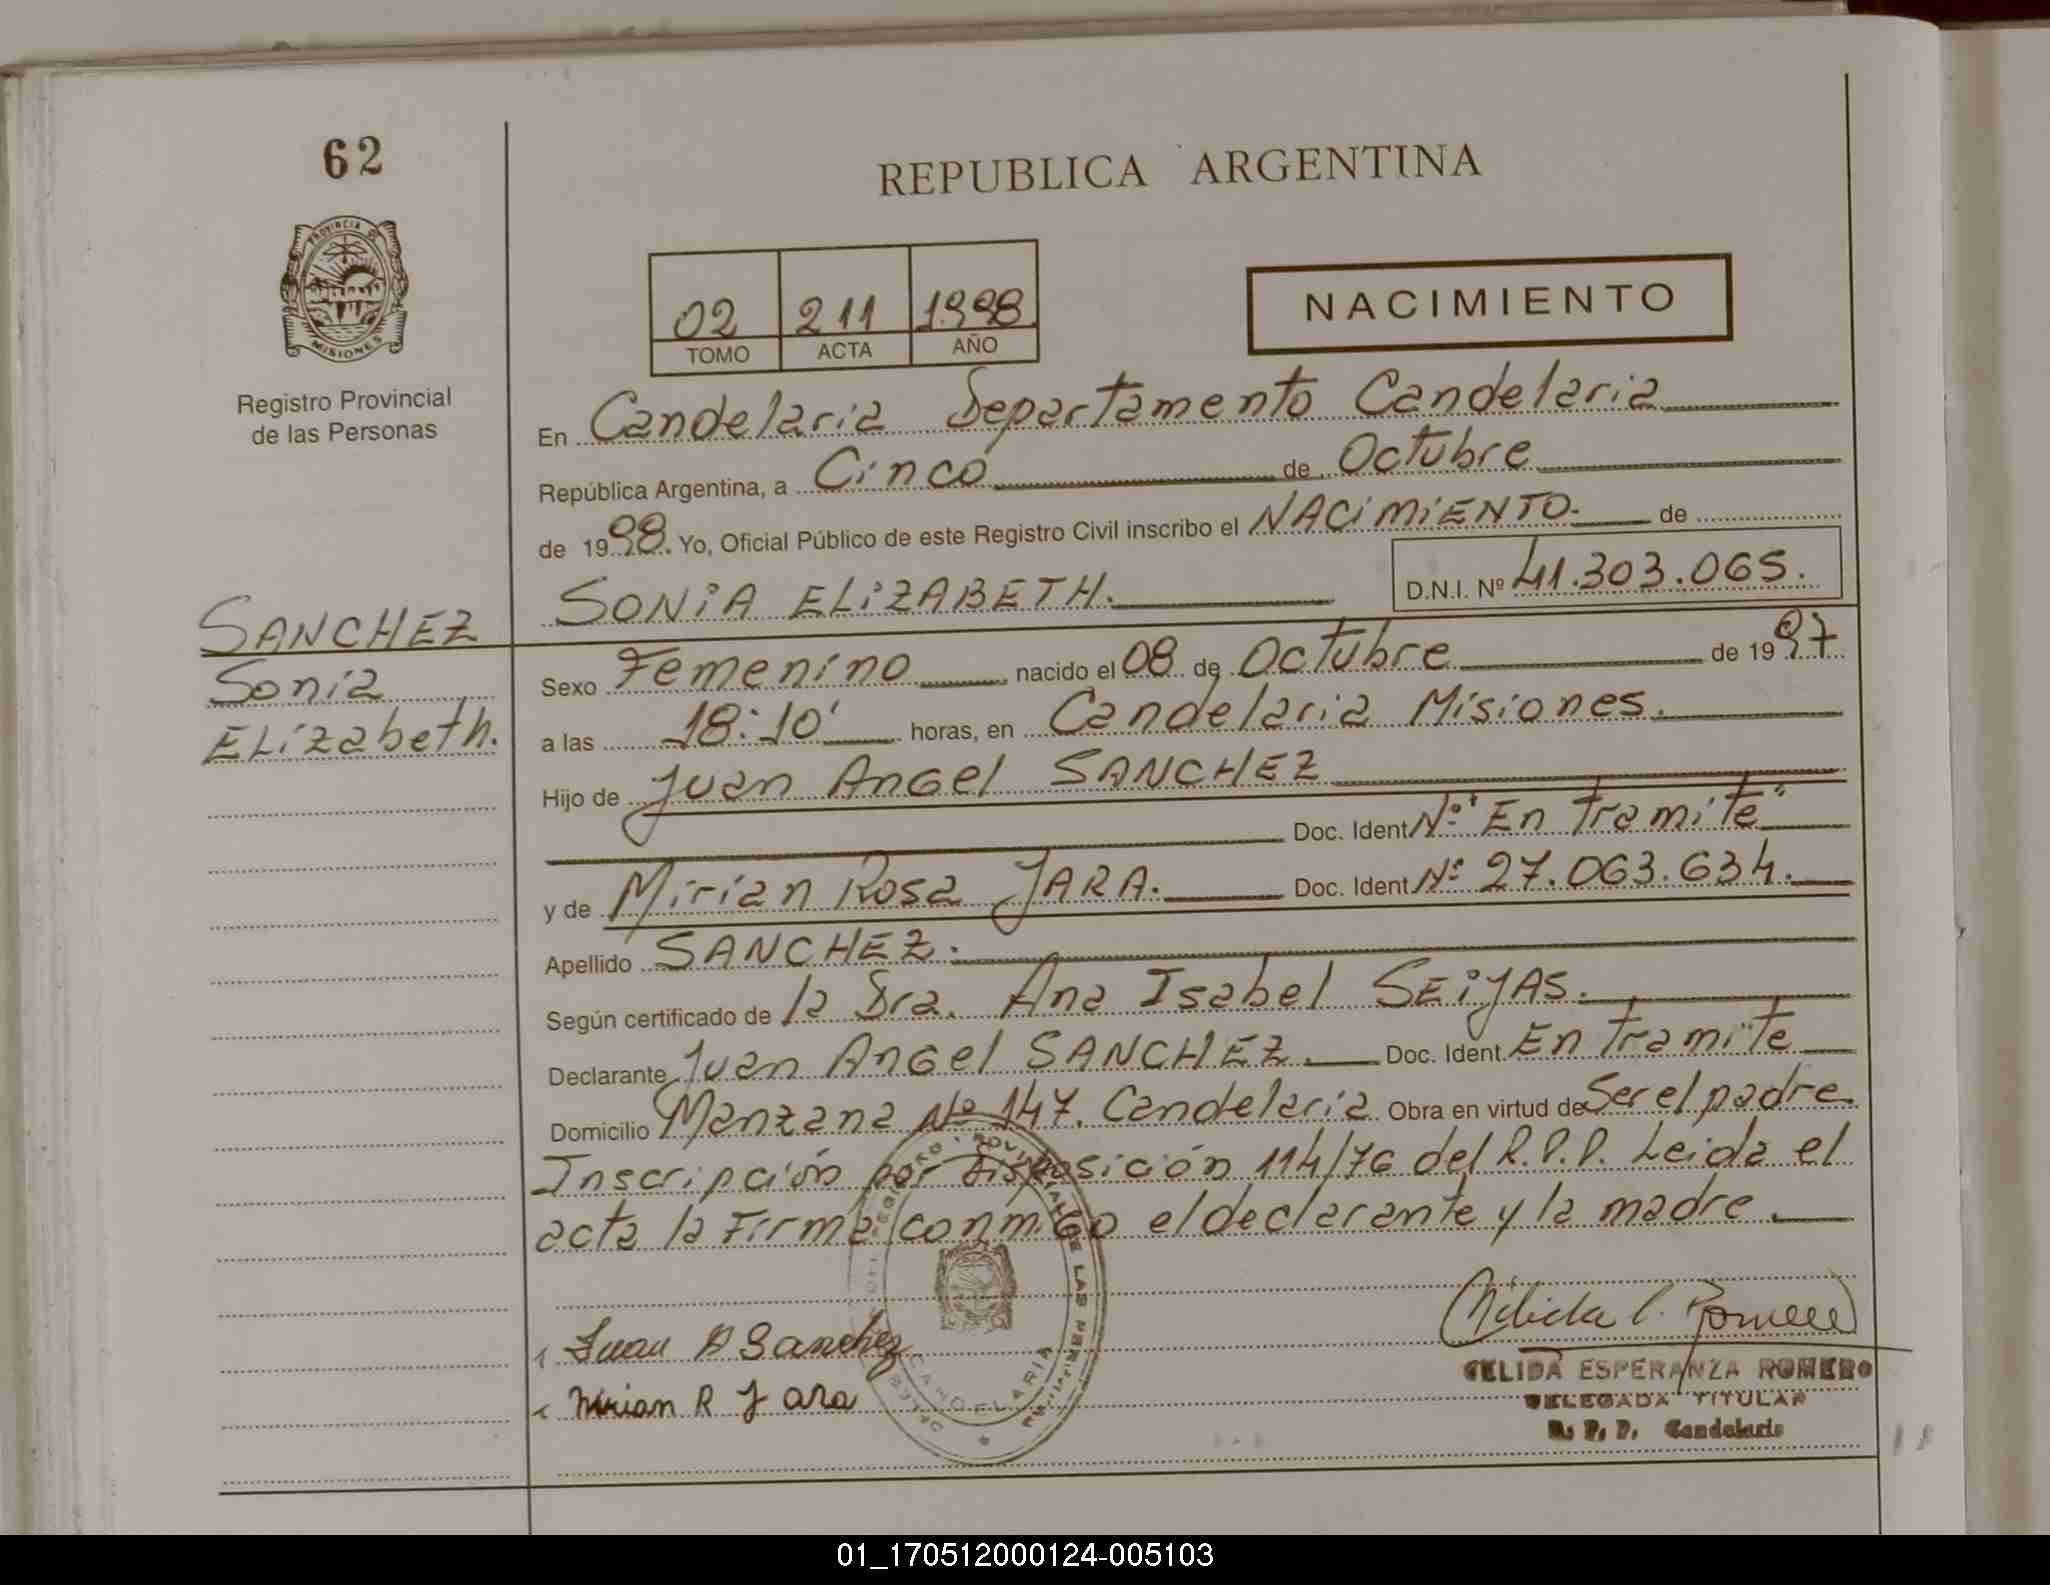 62
REPUBLICA ARGENTINA
PROVINCIA DE
MISIONES
Registro Provincial
de las Personas
02 211 1998
TOMO ACTA AÑO
NACIMIENTO
En Candelaria Departamento Candelaria
República Argentina, a Cinco de Octubre
de 1998. Yo, Oficial Público de este Registro Civil inscribo el NACIMIENTO. de
SONIA ELIZABETH. D.N.I. Nº 41.303.065.
SANCHEZ
Sonia
Elizabeth.
Sexo Femenino nacido el 08 de Octubre de 1997
a las 18:10' horas, en Candelaria Misiones.
Hijo de Juan Angel SANCHEZ
Doc. Ident Nº "En Tramite"
y de Mirian Rosa JARA. Doc. Ident Nº 27.063.634.
Apellido SANCHEZ.
Según certificado de la Dra. Ana Isabel SEIJAS.
Declarante Juan Angel SANCHEZ. Doc. Ident. En Tramite
Domicilio Manzana Nº 147. Candelaria. Obra en virtud de Ser el padre.
Inscripción por disposición 114/76 del R.P.P. Leida el
acta la Firma conmigo el declarante y la madre.
Juan A Sanchez
Mirian R Jara
CANDELARIA
CELIDA ESPERANZA ROMERO
DELEGADA TITULAR
R. P. P. Candelaria
01_170512000124-005103